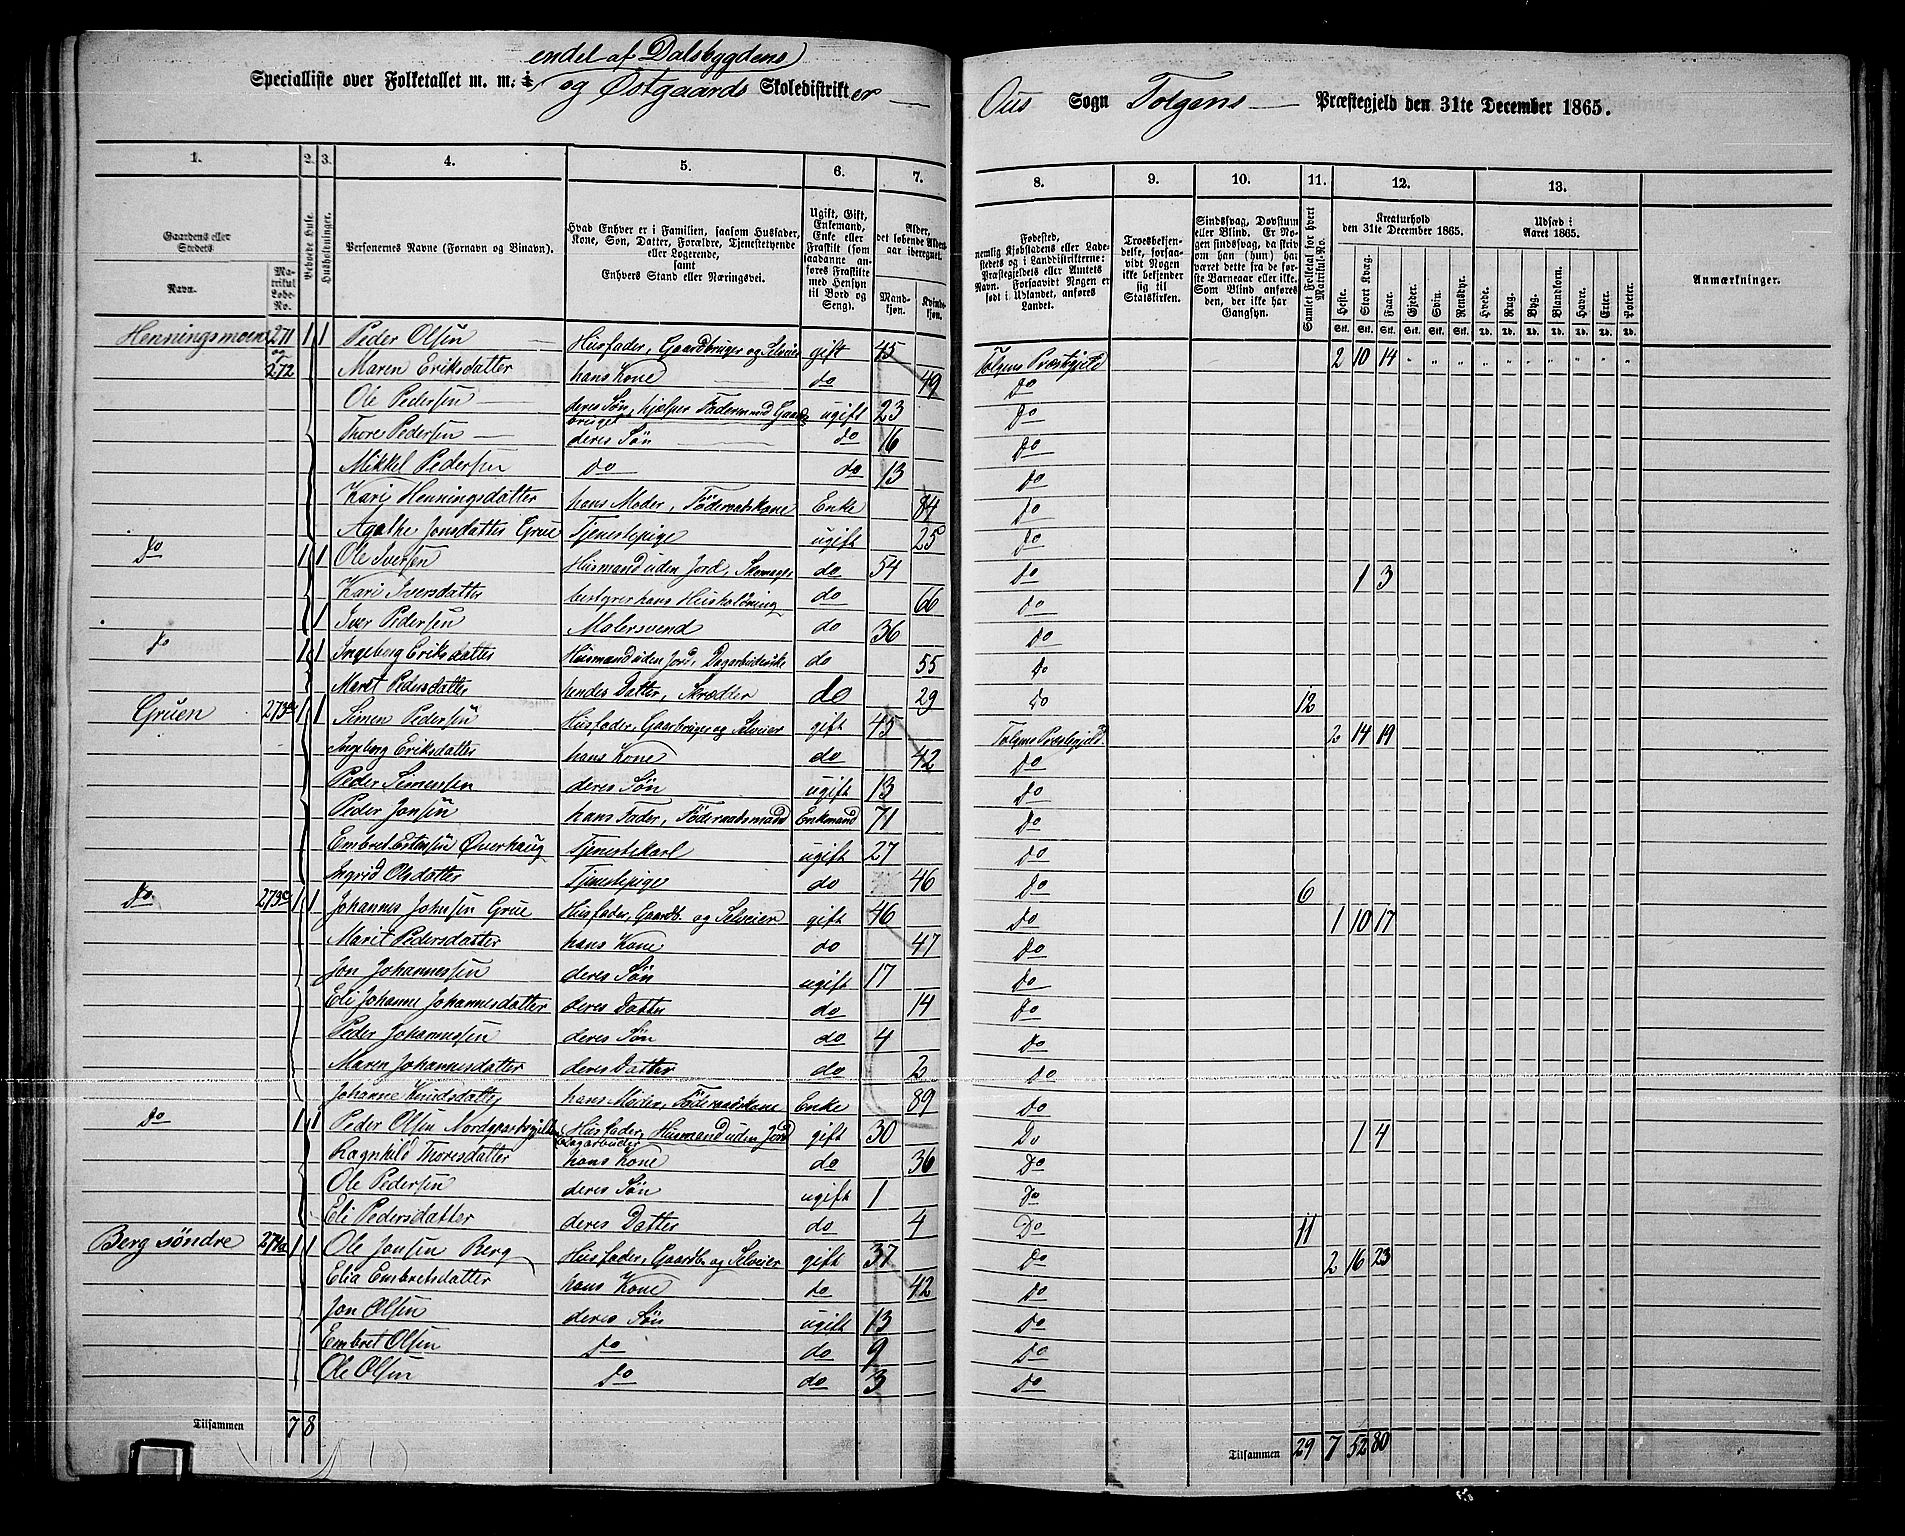 endel af Dalsbygdens
Specialliste over Folketallet m. m. i og Østgaards Skoledistrikter
Ous Sogn Tolgens Præstegjeld den 31te December 1865.
1. 2. 3. 4. 5. 6. 7. 8. 9. 10. 11. 12. 13.
Gaardens eller Stedets
Navn.
Matrikul Løbe-No.
Beboede Huse.
Husholdninger.
Personernes Navne (Fornavn og Binavn).
Hvad Enhver er i Familien, saasom Husfader, Kone, Søn, Datter, Forældre, Tjenestetyende eller Logerende,
samt
Enhvers Stand eller Næringsvei.
Ugift, Gift, Enkemand, Enke eller Fraskilt (saadanne anføres som Fraskilte med Hensyn til Bord og Seng).
Alder, det løbende Aldersaar iberegnet.
Mandkjøn. Kvindekjøn.
Fødested, nemlig Kjøbstadens eller Ladestedets og i Landdistrikterne: Præstegjeldets eller Amtets Navn. Forsaavidt Nogen er født i Udlandet, anføres Landet.
Troesbekjendelse, forsaavidt Nogen ikke bekjender sig til Statskirken.
Sindssvag, Døvstum eller Blind. Er Nogen sindssvag, da skriv om han (hun) har været dette fra de første Barneaar eller ikke. Som Blind anføres den, der ikke har Gangsyn.
Samlet Folketal for hvert Matrikul-No.
Kreaturhold den 31te December 1865.
Heste. Stort Kvæg. Faar. Gjeder. Svin. Rensdyr.
Udsæd i Aaret 1865.
Hvede. Rug. Byg. Blandkorn. Havre. Erter. Poteter.
Anmærkninger.
Henningsmoen 271 1 1 Peder Olsen Husfader, Gaardbruger og Selveier gift 45 Tolgens Præstegjeld 2 10 14
og 272 Maren Eriksdatter hans Kone do 49 Do
Ole Pedersen deres Søn, hjælper Faderen med Gaardbruget ugift 23 Do
Thore Pedersen deres Søn do 16 Do
Mikkel Pedersen Do do 13 Do
Kari Henningsdatter hans Moder, Föderaadskone Enke 84 Do
Agathe Jonsdatter Grue Tjenestepige ugift 25 Do
Do 1 1 Ole Iversen Husmand uden Jord, Skomager do 54 Do 1 3
Kari Iversdatter bestyrer hans Husholdning do 66 Do
1 Iver Pedersen Malersvend do 36 Do
Do 1 1 Ingeborg Eriksdatter Husmand uden Jord, do 55 Do
Marit Pedersdatter hendes Datter, Skrædder do 29 Do 12
Gruen 273a 1 1 Simen Pedersen Husfader, Gaardbruger og Selveier gift 45 Tolgens Præstegjeld 2 14 19
Ingeborg Eriksdatter hans Kone do 42 Do
Peder Simensen deres Søn ugift 13 Do
Peder Jonsen hans Fader, Föderaadsmand Enkemand 71 Do
Embret Estensen Øverhaug Tjenestekarl ugift 27 Do
Ingrid Olsdatter Tjenestepige do 46 Do 6
Do 273c 1 1 Johannes Johnsen Grue Husfader, Gaardb. og Selveier gift 46 Do 1 10 17
Marit Pedersdatter hans Kone do 47 Do
Jon Johannessen deres Søn ugift 17 Do
Eli Johanne Johannesdatter deres Datter do 14 Do
Peder Johannessen deres Søn do 4 Do
Maren Johannesdatter deres Datter do 2 Do
Johanne Knudsdatter hans Moder, Föderaadskone Enke 89 Do
Do 1 1 Peder Olsen Husfader, Husmand uden Jord Dagarbeider gift 30 Do 1 4
Ragnhild Thoresdatter hans Kone do 36 Do
Ole Pedersen deres Søn ugift 1 Do
Eli Pedersdatter deres Datter do 4 Do 11
Berg søndre 274a 1 1 Ole Jonsen Berg Husfader, Gaardb. og Selveier gift 37 Do 2 16 23
Elia Embretsdatter hans Kone do 42 Do
Jon Olsen deres Søn ugift 13 Do
Embret Olsen Do do 9 Do
Ole Olsen Do do 3 Do
Tilsammen 7 8
Tilsammen 29 7 52 80